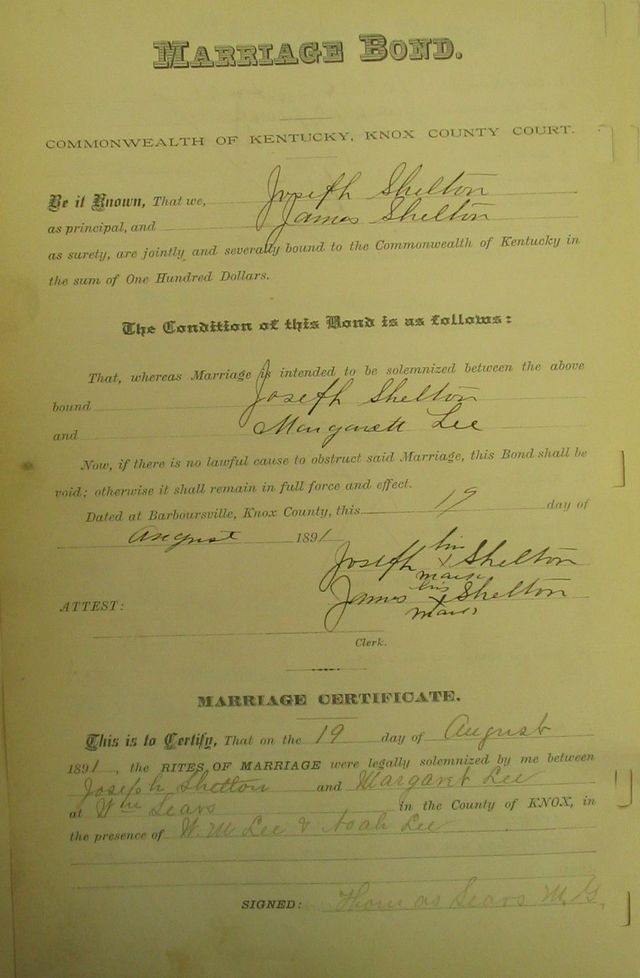 MARRIAGE BOND.
COMMONWEALTH OF KENTUCKY, KNOX COUNTY COURT.
Be it Known, That we, Joseph Shelton
as principal, and James Shelton
as surety, are jointly and severally bound to the Commonwealth of Kentucky in
the sum of One Hundred Dollars.
The Condition of this Bond is as follows:
That, whereas Marriage is intended to be solemnized between the above
bound Joseph Shelton
and Margarett Lee
Now, if there is no lawful cause to obstruct said Marriage, this Bond shall be
void; otherwise it shall remain in full force and effect.
Dated at Barboursville, Knox County, this 19 day of
August 1891
his
Joseph x Shelton
mark
his
James x Shelton
mark
ATTEST:
Clerk.
MARRIAGE CERTIFICATE.
This is to Certify, That on the 19 day of August
1891, the RITES OF MARRIAGE were legally solemnized by me between
Joseph Shelton and Margaret Lee
at Wm Sears in the County of KNOX, in
the presence of W. M Lee & Noah Lee
SIGNED: Thomas Sears M. G.